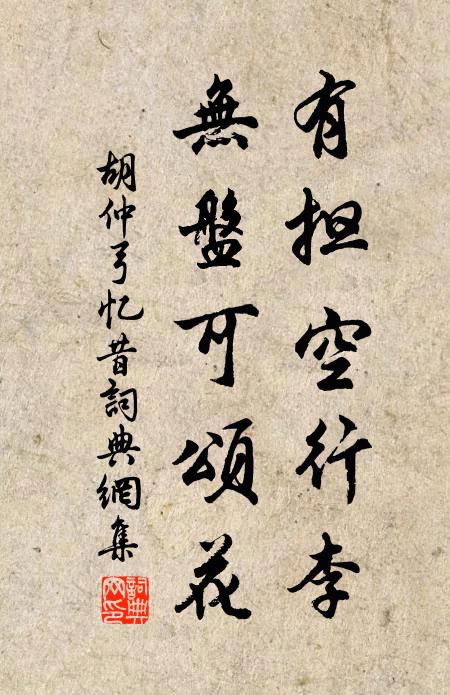 有担空行李
無盤可頌花
胡仲弓忆昔詞典網集
詞典网印